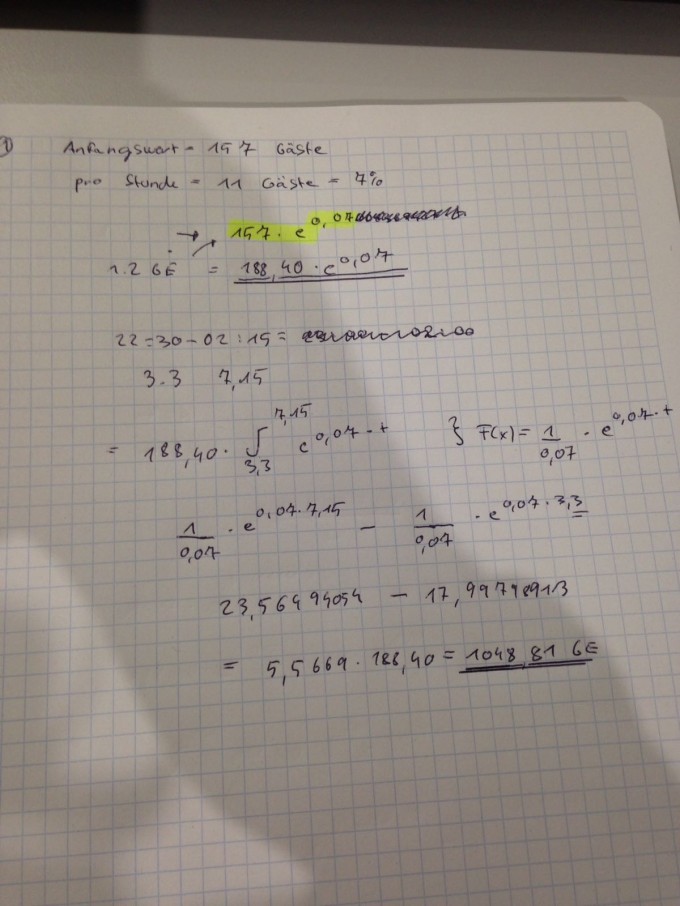 1) Anfangswert = 157 Gäste
pro Stunde = 11 Gäste = 7%
→ 157 · e^0,07
1.2 GE = 188,40 · e^0,07
22:30 - 02:15 =
3.3 7,15
= 188,40 · ∫_3,3^7,15 e^0,07·t } F(x) = 1/0,07 · e^0,07·t
1/0,07 · e^0,07·7,15 - 1/0,07 · e^0,07·3,3
23,56494054 -
= 5,5669 · 188,40 = 1048,81 GE